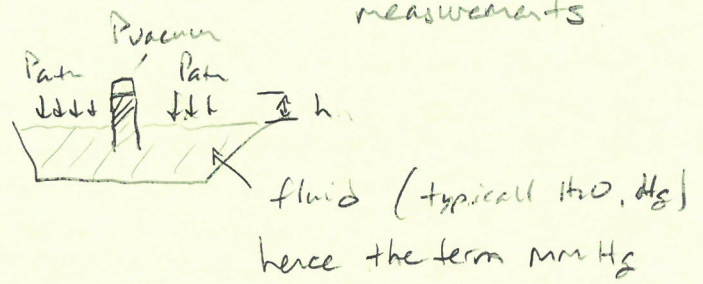 measurements
Pvacuum
Patm
Patm
h
fluid (typicall H2O, Hg)
hence the term mm Hg